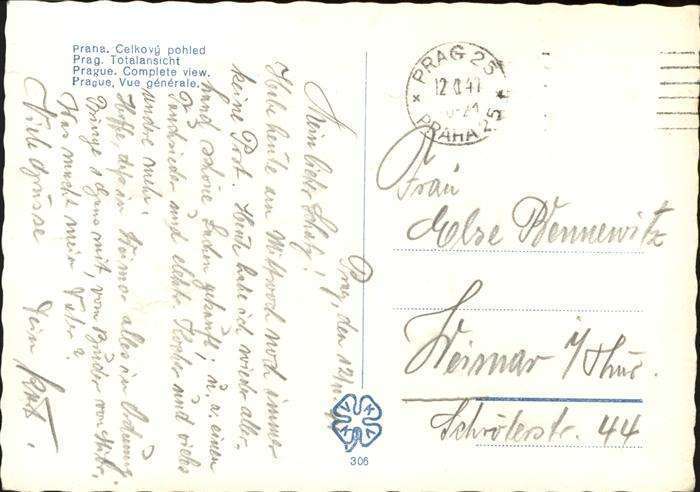 Praha. Celkový pohled
Prag. Totalansicht
Prague. Complete view.
Prague, Vue générale.
PRAG 25
PRAHA 25
Prag, den 12/
Mein lieber Schatz!
Habe heute am Mittwoch noch immer
keine Post. Heute habe ich wieder aller-
hand schöne Sachen gekauft, u. a. einen
und elektr. und vieles
andere mehr.
Hoffe, daß in Weimar alles in Ordnung.
Bringe
Was macht mein Vater?
Viele Grüsse
Dein
Frau
Else Bennewitz
Weimar i/Thür.
Schröterstr. 44
306